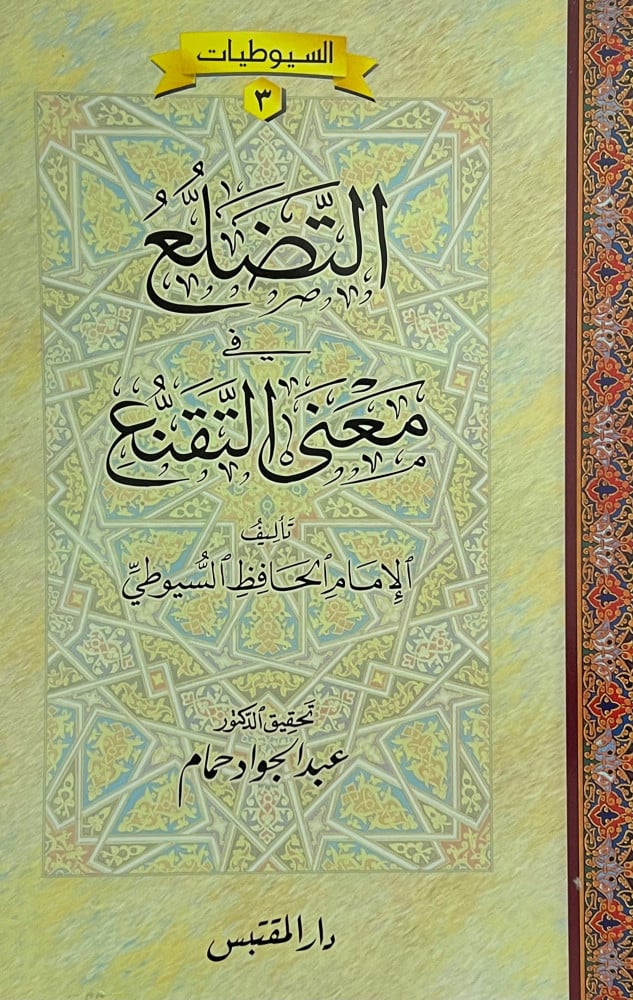 السيوطيات
٣
التَّضَلُّعُ
في
مَعْنَى التَّقَنُّعِ
تَأليفُ
الإمَامِ الحَافِظِ السُّيوطيِّ
تحقيق الدكتور
عبد الجواد حمام
دار المقتبس